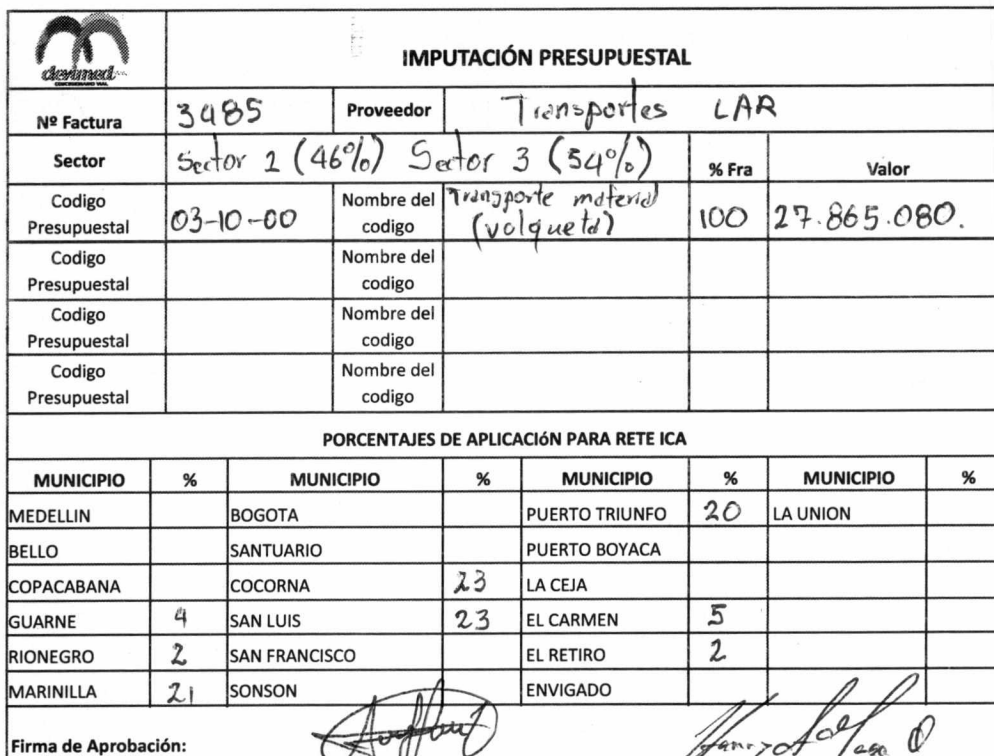 devimed
CONCESIONARIO VIAL
IMPUTACIÓN PRESUPUESTAL
Nº Factura 3485 Proveedor Transportes LAR
Sector Sector 2 (46%) Sector 3 (54%) % Fra Valor
Codigo Presupuestal 03-10-00 Nombre del codigo Transporte material (volqueta) 100 27.865.080.
Codigo Presupuestal Nombre del codigo
Codigo Presupuestal Nombre del codigo
Codigo Presupuestal Nombre del codigo
PORCENTAJES DE APLICACIÓN PARA RETE ICA
MUNICIPIO % MUNICIPIO % MUNICIPIO % MUNICIPIO %
MEDELLIN BOGOTA PUERTO TRIUNFO 20 LA UNION
BELLO SANTUARIO PUERTO BOYACA
COPACABANA COCORNA 23 LA CEJA
GUARNE 4 SAN LUIS 23 EL CARMEN 5
RIONEGRO 2 SAN FRANCISCO EL RETIRO 2
MARINILLA 21 SONSON ENVIGADO
Firma de Aprobación: